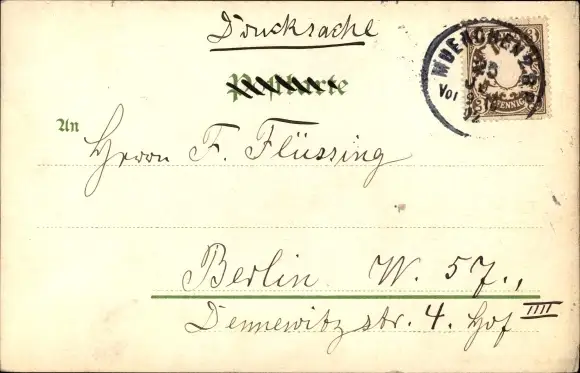 Drucksache
Postkarte
MUENCHEN 2 B.P.
Vor
92
3
PFENNIG
An
Herrn F. Flüssing
Berlin W. 57.,
Dennewitzstr. 4. Hof IIII